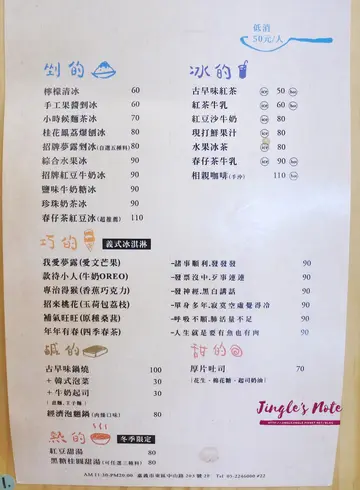 低消
50元/人
剉的
檸檬清冰 60
手工果醬剉冰 60
小時候麵茶冰 70
桂花鳳荔爆刨冰 80
招牌夢露剉冰(自選五種料) 80
綜合水果冰 90
招牌紅豆牛奶冰 90
鹽味牛奶糖冰 90
珍珠奶茶冰 90
春仔茶紅豆冰(超推薦) 110
冰的
古早味紅茶 50
紅茶牛乳 60
紅豆沙牛奶 80
現打鮮果汁 80
水果冰茶 80
春仔茶牛乳 90
相親咖啡(手沖) 110
巧的 義式冰淇淋
我愛夢露(愛文芒果) -諸事順利,發發發 90
款待小人(牛奶OREO) -發票沒中,歹事連連 90
專治得猴(香蕉巧克力) -發神經,黑白講話 90
招來桃花(玉荷包荔枝) -單身多年,寂寞空虛覺得冷 90
補氣旺旺(原種桑葚) -呼吸不順,肺活量不足 90
年年有春(四季春茶) -人生就是要有魚也有肉 90
鹹的
古早味鍋燒 100
+韓式泡菜 30
+牛奶起司 30
經濟泡麵鍋(肉燥口味) 80
甜的
厚片吐司 70
(花生、棉花糖、起司奶油)
Jingle's Note
熱的 冬季限定
紅豆甜湯 80
黑糖桂圓甜湯(可任選三種料) 80
AM11:30-PM20:00 嘉義市東區中山路203號2F Tel 05-2286000 #22
1.